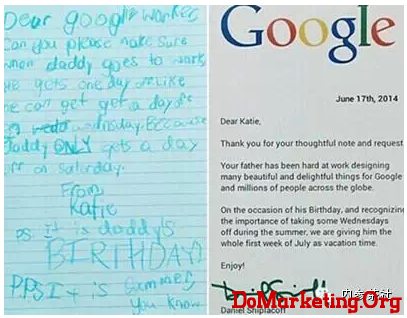 Dear google worker,
Can you please make sure
when daddy goes to work
he gets one day off. Like
he can get get a day off
on wednsday. Because
daddy ONLY gets a day
off on saturday.
From
Katie
Ps it is daddy's
BIRTHDAY!
P.P.S It is summer
you know
Google
June 17th, 2014
Dear Katie,
Thank you for your thoughtful note and request
Your father has been hard at work designing
many beautiful and delightful things for Google
and millions of people across the globe.
On the occasion of his Birthday, and recognizing
the importance of taking some Wednesdays
off during the summer, we are giving him the
whole first week of July as vacation time.
Enjoy!
Daniel Shiplacoff
DoMarketing.Org